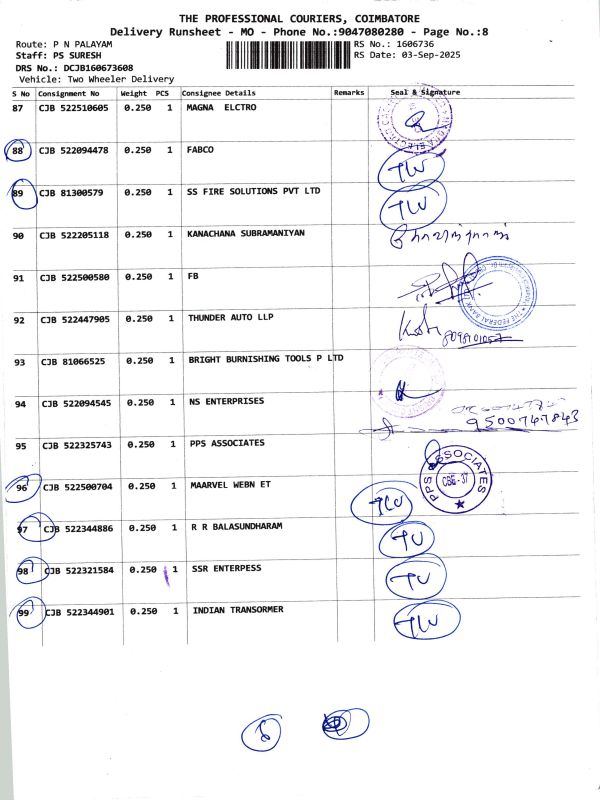 THE PROFESSIONAL COURIERS, COIMBATORE
Delivery Runsheet - MO - Phone No.:9047080280 - Page No.:8
Route: P N PALAYAM
RS No.: 1606736
Staff: PS SURESH
RS Date: 03-Sep-2025
DRS No.: DCJB160673608
Vehicle: Two Wheeler Delivery
S No Consignment No Weight PCS Consignee Details Remarks Seal & Signature
87 CJB 522510605 0.250 1 MAGNA ELCTRO
88 CJB 522094478 0.250 1 FABCO
89 CJB 81300579 0.250 1 SS FIRE SOLUTIONS PVT LTD
90 CJB 522205118 0.250 1 KANACHANA SUBRAMANIYAN
91 CJB 522500580 0.250 1 FB
92 CJB 522447905 0.250 1 THUNDER AUTO LLP
93 CJB 81066525 0.250 1 BRIGHT BURNISHING TOOLS P LTD
94 CJB 522094545 0.250 1 NS ENTERPRISES 9500747843
95 CJB 522325743 0.250 1 PPS ASSOCIATES PPS ASSOCIATES CBE - 37
96 CJB 522500704 0.250 1 MAARVEL WEBN ET
97 CJB 522344886 0.250 1 R R BALASUNDHARAM
98 CJB 522321584 0.250 1 SSR ENTERPESS
99 CJB 522344901 0.250 1 INDIAN TRANSORMER